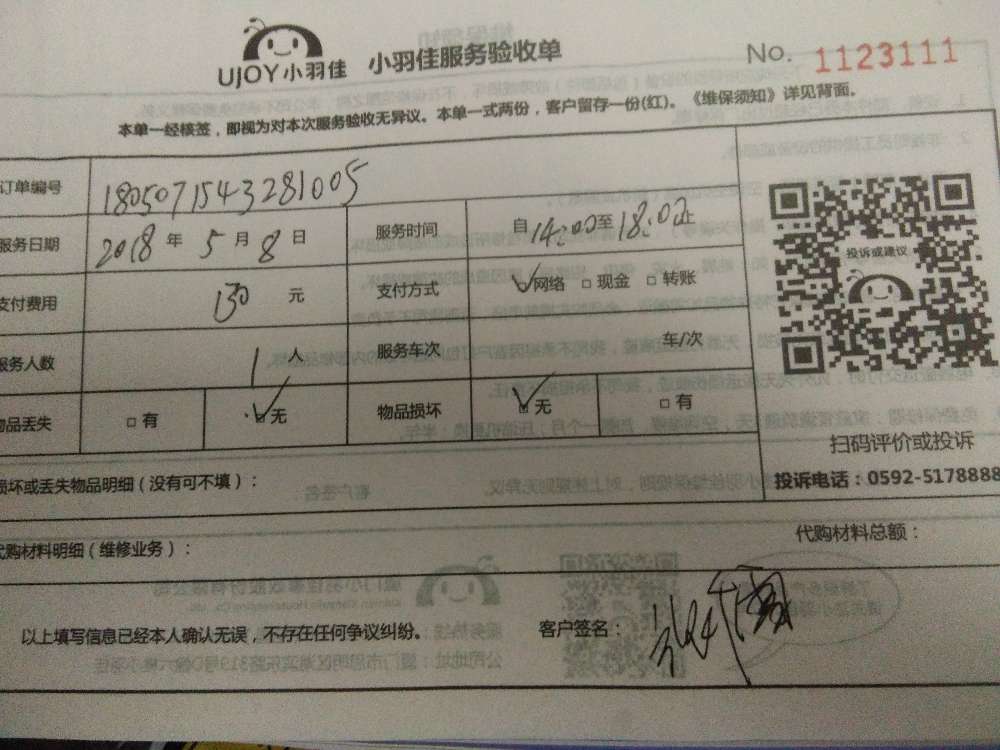 UJOY小羽佳 小羽佳服务验收单 No. 1123111
本单一经核签，即视为对本次服务验收无异议。本单一式两份，客户留存一份(红)。《维保须知》详见背面。
订单编号 1805071543281005
服务日期 2018年5月8日 服务时间 自14:00至18:00止
支付费用 150元 支付方式 ☑网络 □现金 □转账
服务人数 1人 服务车次 车/次
物品丢失 □有 ☑无 物品损坏 ☑无 □有
投诉或建议
扫码评价或投诉
投诉电话：0592-5178888
损坏或丢失物品明细（没有可不填）：
代购材料明细（维修业务）： 代购材料总额：
以上填写信息已经本人确认无误，不存在任何争议纠纷。 客户签名：